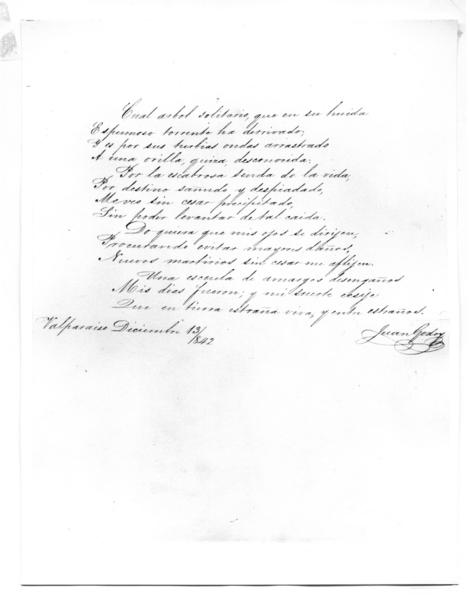 Cual arbol solitario, que en su huida
Espumoso torrente ha derrivado;
Y es por sus turbias ondas arrastrado
A una orilla, quiza, desconocida:
Por la escabrosa senda de la vida,
Por destino sañudo y despiadado,
Me veo sin cesar precipitado,
Sin poder levantar de tal caida.
Do quiera que mis ojos se dirijen,
Procurando evitar mayores daños,
Nuevos martirios sin cesar me aflijen.
Una escuela de amargos desengaños
Mis dias fueron, y mi suerte
Que en tierra estraña viva, y entre estraños.
Valparaiso Diciembre 13/
1842
Juan Godoy